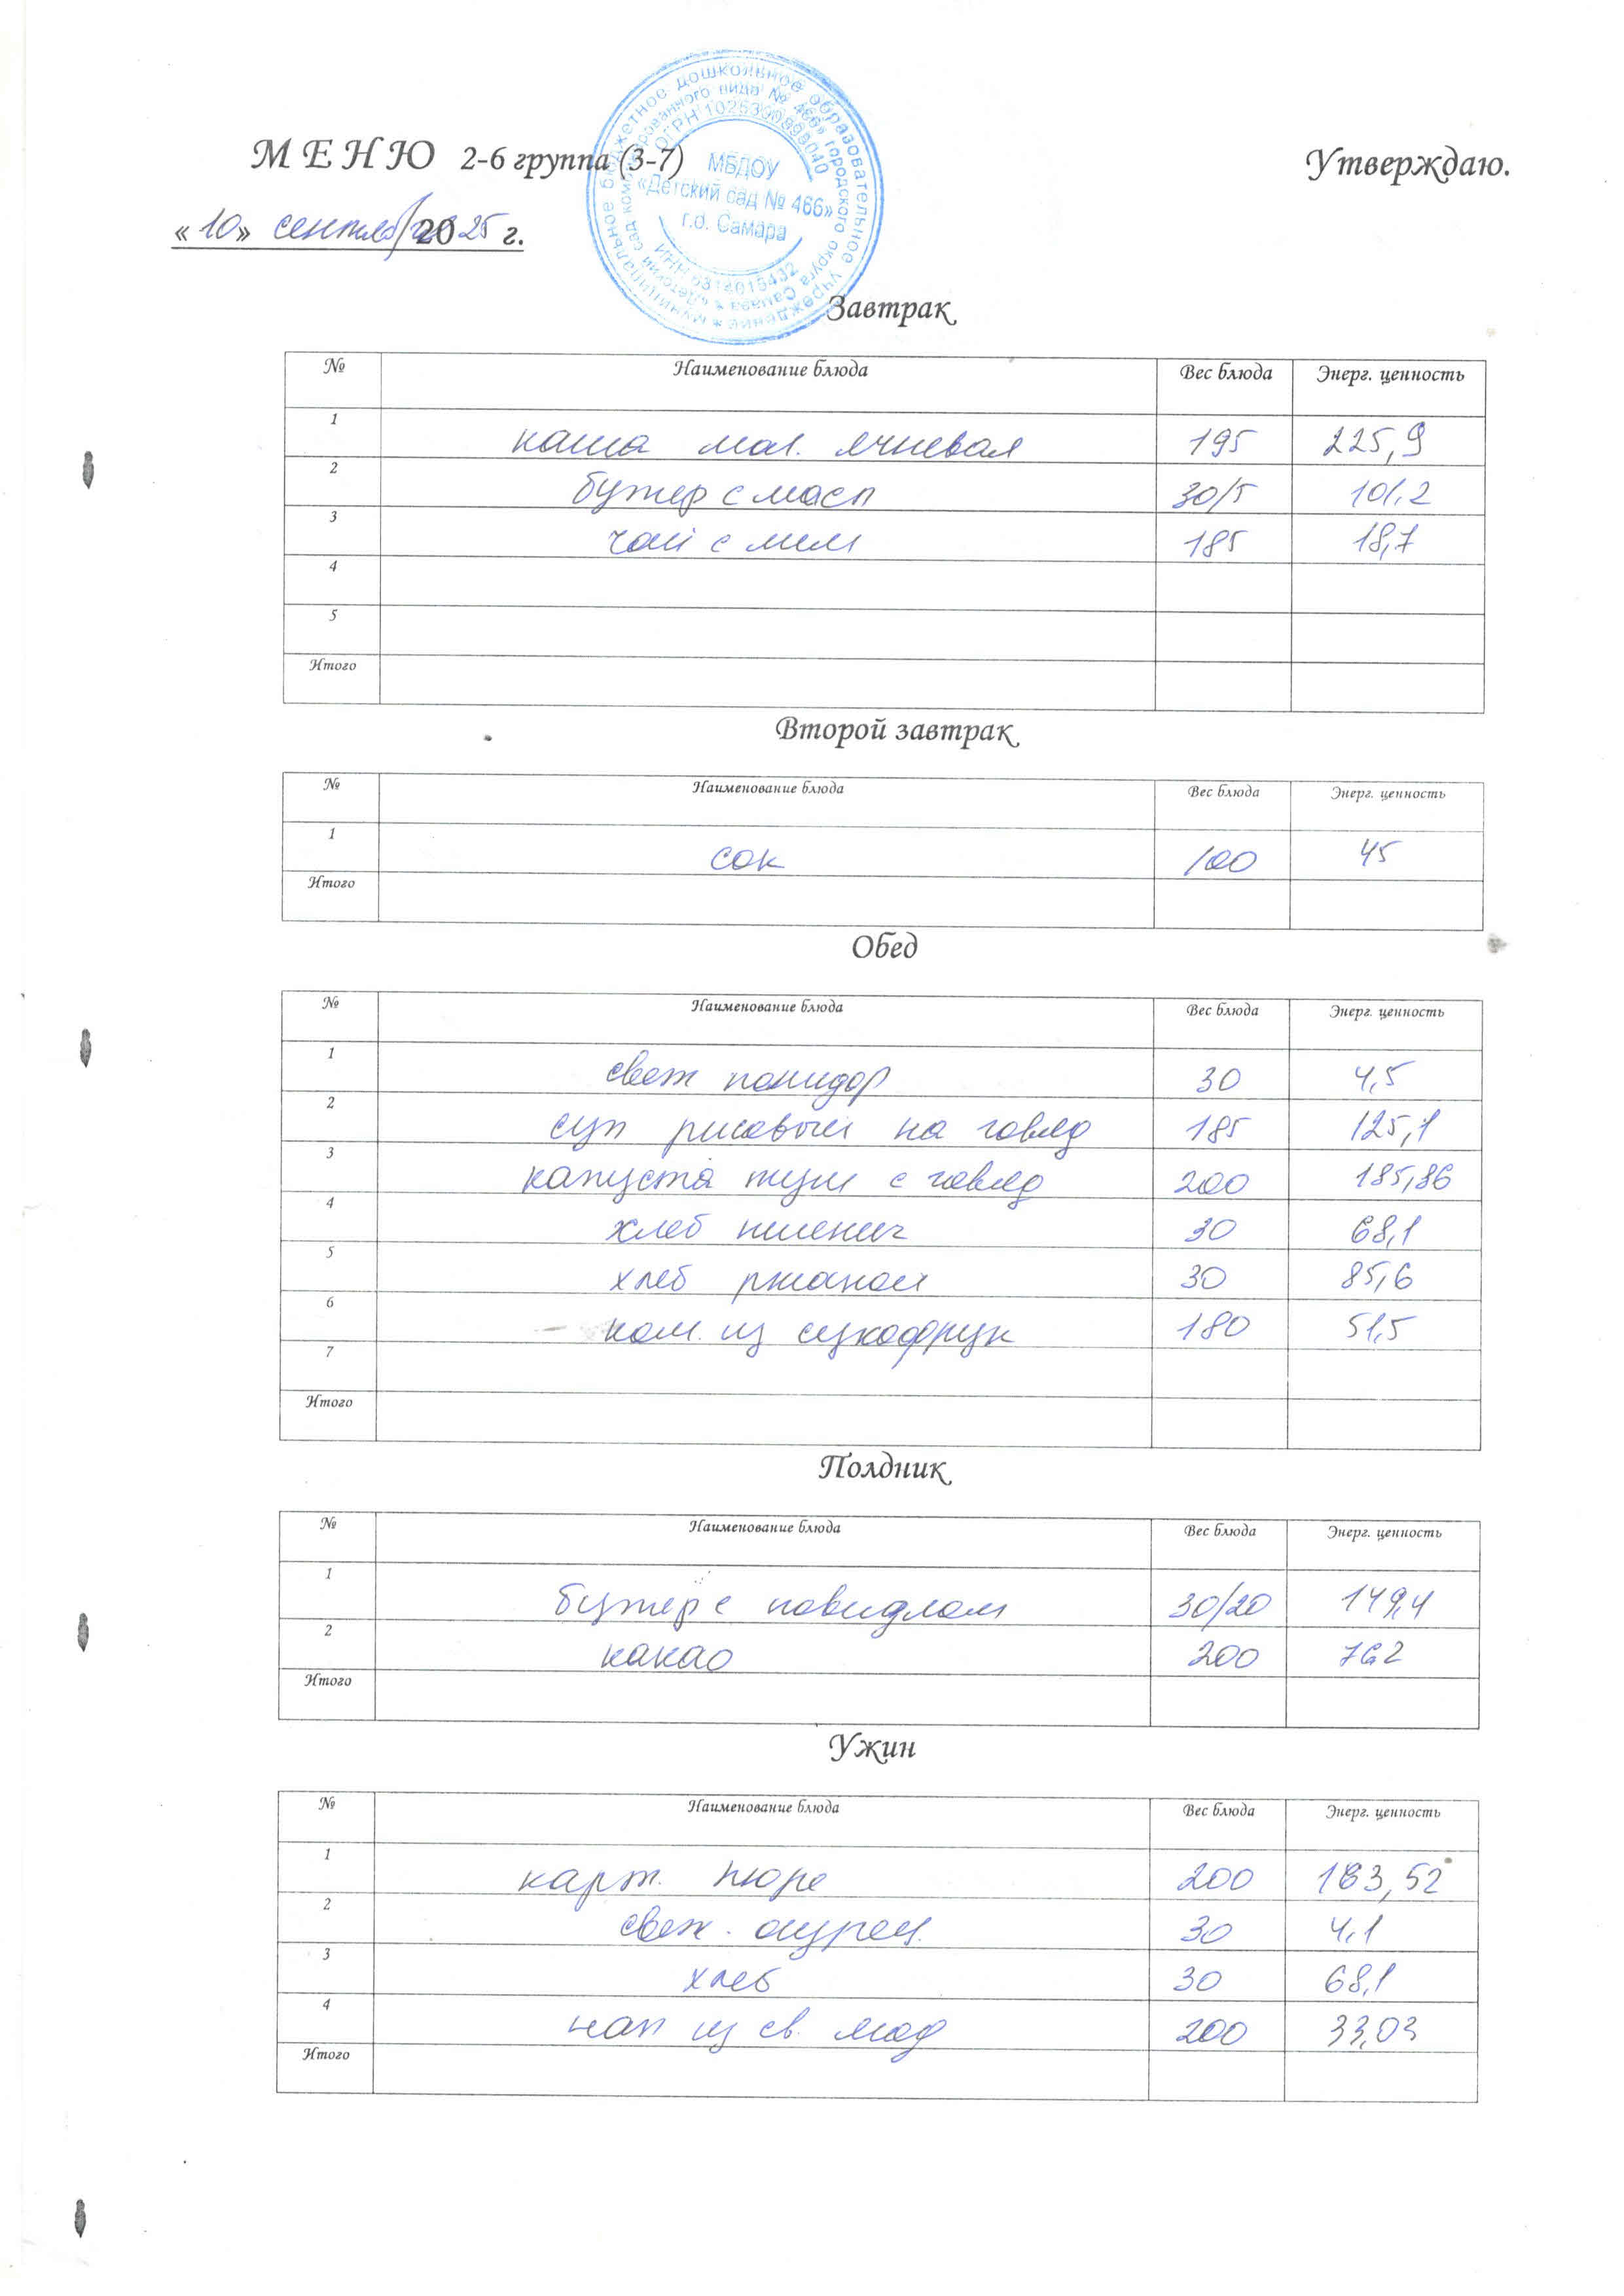 М Е Н Ю 2-6 группа (3-7) Утверждаю.
муниципальное бюджетное дошкольное образовательное учреждение
«Детский сад комбинированного вида № 466» городского округа Самара
МБДОУ
«Детский сад № 466»
г.о. Самара
«10» сентября 2025 г.
Завтрак
№ Наименование блюда Вес блюда Энерг. ценность
1 каша мол. ячневая 195 225,9
2 бутер с масл 30/5 101,2
3 чай с мол 185 18,7
4
5
Итого
Второй завтрак
№ Наименование блюда Вес блюда Энерг. ценность
1 сок 100 45
Итого
Обед
№ Наименование блюда Вес блюда Энерг. ценность
1 свеж помидор 30 4,5
2 суп рисовый на говяд 185 125,1
3 капуста туш с говяд 200 185,86
4 хлеб пшенич 30 68,1
5 хлеб ржаной 30 85,6
6 ком. из сухофрук 180 51,5
7
Итого
Полдник
№ Наименование блюда Вес блюда Энерг. ценность
1 бутер с повидлом 30/20 149,4
2 какао 200 76,2
Итого
Ужин
№ Наименование блюда Вес блюда Энерг. ценность
1 карт. пюре 200
2 свеж. огурец. 30 4,1
3 хлеб 30 68,1
4 нап из св. 200 33,03
Итого